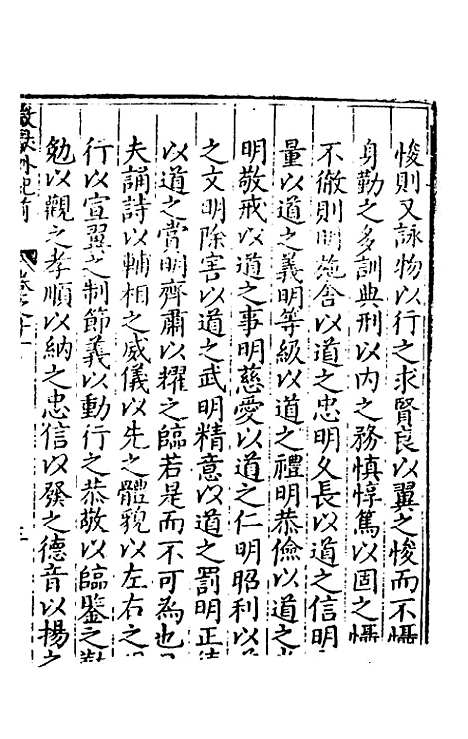 悛則又詠物以行之求賢良以翼之悛而不懾
身勤之多訓典刑以内之務慎惇篤以固之懾
不徹則明施舍以道之忠明久長以道之信明
量以道之義明等級以道之禮明恭儉以道之
明敬戒以道之事明慈愛以道之仁明昭利以
之文明除害以道之武明精意以道之罰明正
以道之賞明齊肅以耀之臨若是而不可為也
夫誦詩以輔相之威儀以先之體貌以左右之
行以宣翼之制節義以動行之恭敬以臨鑒之
勉以觀之孝順以納之忠信以發之德音以揚之
外紀前